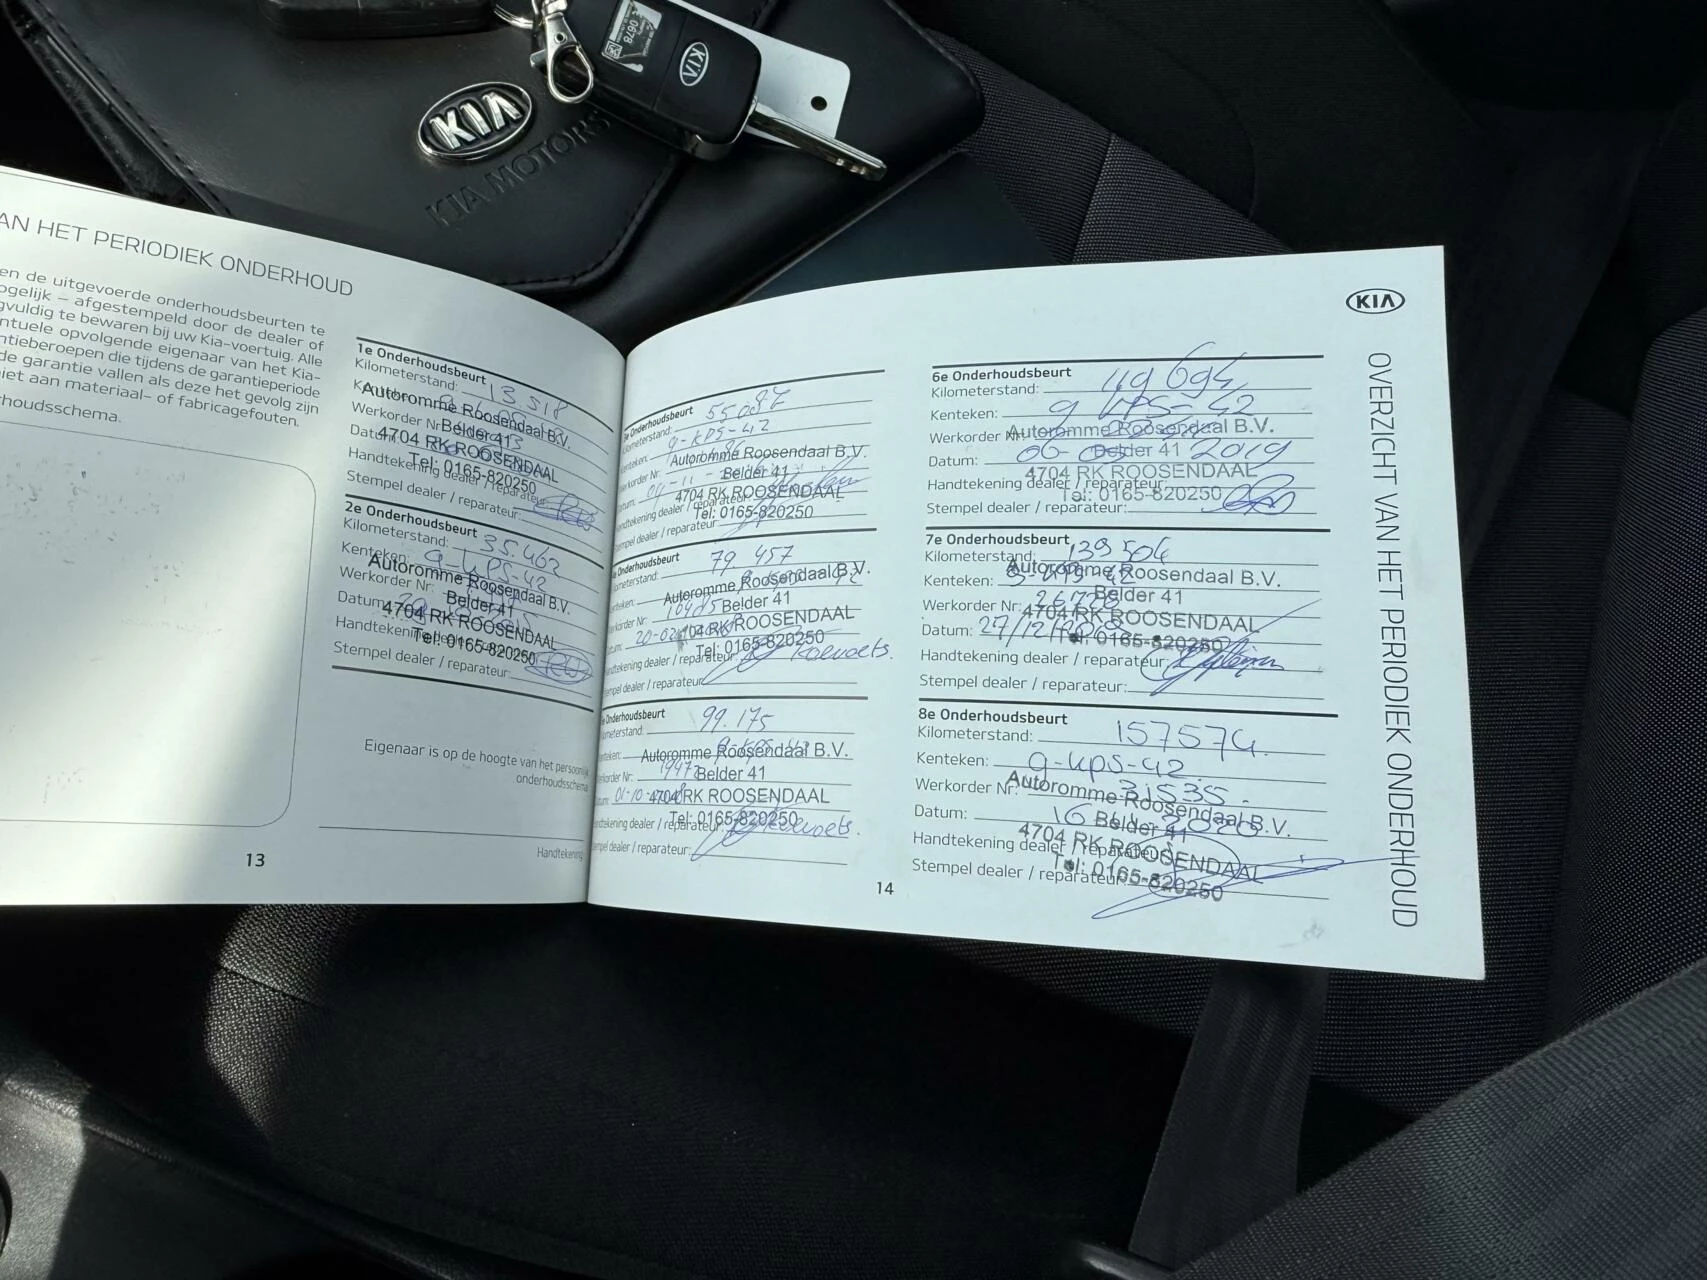 KIA
KIA
KIA MOTORS
0678
AN HET PERIODIEK ONDERHOUD
en de uitgevoerde onderhoudsbeurten te
ogelijk – afgestempeld door de dealer of
gvuldig te bewaren bij uw Kia-voertuig. Alle
ntuele opvolgende eigenaar van het Kia-
ntieberoepen die tijdens de garantieperiode
de garantie vallen als deze het gevolg zijn
niet aan materiaal- of fabricagefouten.
rhoudsschema.
1e Onderhoudsbeurt
Kilometerstand: 13.518
Autoromme Roosendaal B.V.
Werkorder Nr:
Belder 41
Datum:
4704 RK ROOSENDAAL
Handtekening dealer / reparateur:
Tel: 0165-820250
Stempel dealer / reparateur:
2e Onderhoudsbeurt
Kilometerstand: 35.462
Kenteken: 9-KPS-42
Autoromme Roosendaal B.V.
Werkorder Nr:
Belder 41
Datum:
4704 RK ROOSENDAAL
Tel: 0165-820250
Stempel dealer / reparateur:
Eigenaar is op de hoogte van het persoonlijk
onderhoudsschema
Handtekening
13
e Onderhoudsbeurt
ilometerstand:
enteken: 9-KPS-42
Autoromme Roosendaal B.V.
erkorder Nr:
Belder 41
4704 RK ROOSENDAAL
Tel: 0165-820250
tempel dealer / reparateur
Onderhoudsbeurt
meterstand: 79.457
Autoromme Roosendaal B.V.
Belder 41
erkorder Nr:
4704 RK ROOSENDAAL
Tel: 0165-820250
ndtekening dealer / reparateur:
empel dealer / reparateur:
e Onderhoudsbeurt
ometerstand: 99.175
enteken:
Autoromme Roosendaal B.V.
rkorder Nr:
Belder 41
4704 RK ROOSENDAAL
Tel: 0165-820250
ndtekening dealer / reparateur:
mpel dealer / reparateur:
14
KIA
OVERZICHT VAN HET PERIODIEK ONDERHOUD
6e Onderhoudsbeurt
Kilometerstand: 119 694
Kenteken: 9 KPS-42
Werkorder Nr:
Autoromme Roosendaal B.V.
Datum: 2019
Belder 41
4704 RK ROOSENDAAL
Handtekening dealer / reparateur:
Tel: 0165-820250
Stempel dealer / reparateur:
7e Onderhoudsbeurt
Kilometerstand: 139 504
Autoromme Roosendaal B.V.
Kenteken:
Belder 41
Werkorder Nr:
4704 RK ROOSENDAAL
Datum: 27/12/
Tel: 0165-820250
Handtekening dealer / reparateur:
Stempel dealer / reparateur:
8e Onderhoudsbeurt
Kilometerstand: 157574
Kenteken: 9-KPS-42
Werkorder Nr: 31535
Autoromme Roosendaal B.V.
Datum: 16
Belder 41
Handtekening dealer / reparateur:
4704 RK ROOSENDAAL
Tel: 0165-820250
Stempel dealer / reparateur: